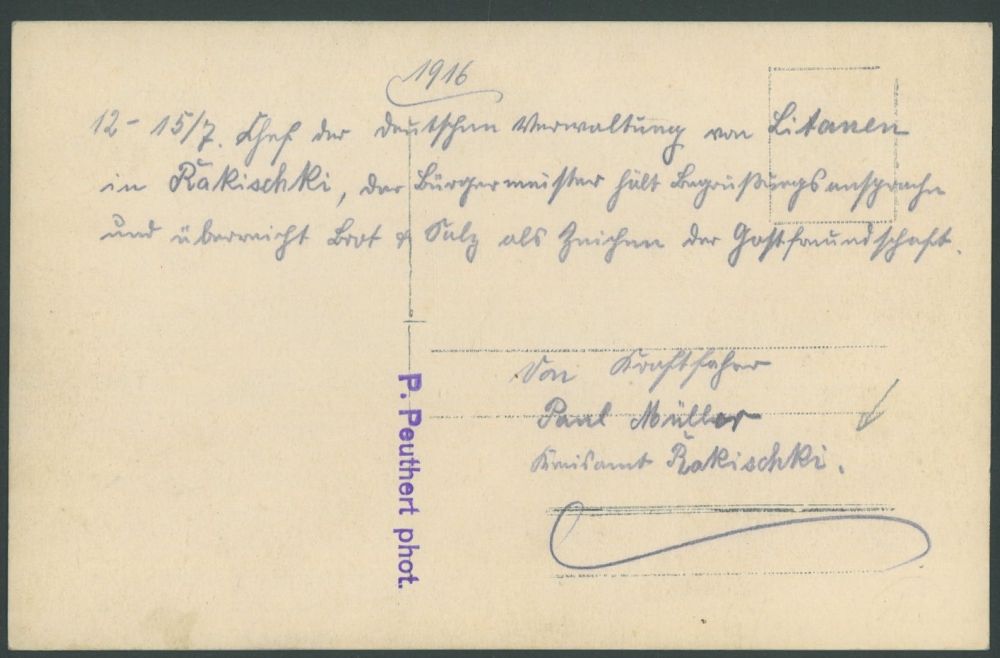 1916
12 - 15/7. Chef der deutschen Verwaltung von Litauen
in Rakischki, der Bürgermeister hält Begrüßungsansprache
und überreicht Brot & Salz als Zeichen der Gastfreundschaft.
Von Kraftfahrer
Paul Müller
Kreisamt Rakischki.
P. Peuthert phot.